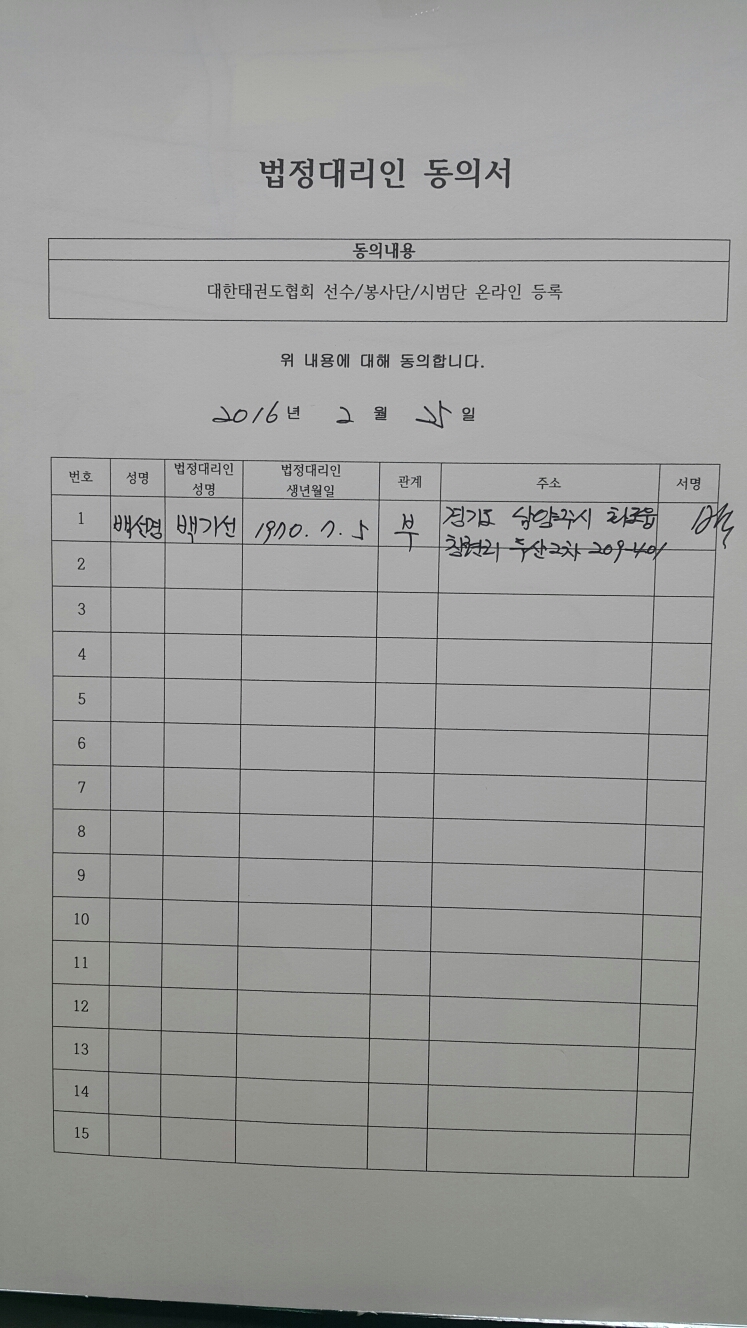 법정대리인 동의서
동의내용
대한태권도협회 선수/봉사단/시범단 온라인 등록
위 내용에 대해 동의합니다.
2016년 2월 25일
번호 성명 법정대리인 성명 법정대리인 생년월일 관계 주소 서명
1 백선경 백기선 1970. 7. 5 부 경기도 남양주시 화도읍
창현리 두산2차 209-401
2
3
4
5
6
7
8
9
10
11
12
13
14
15